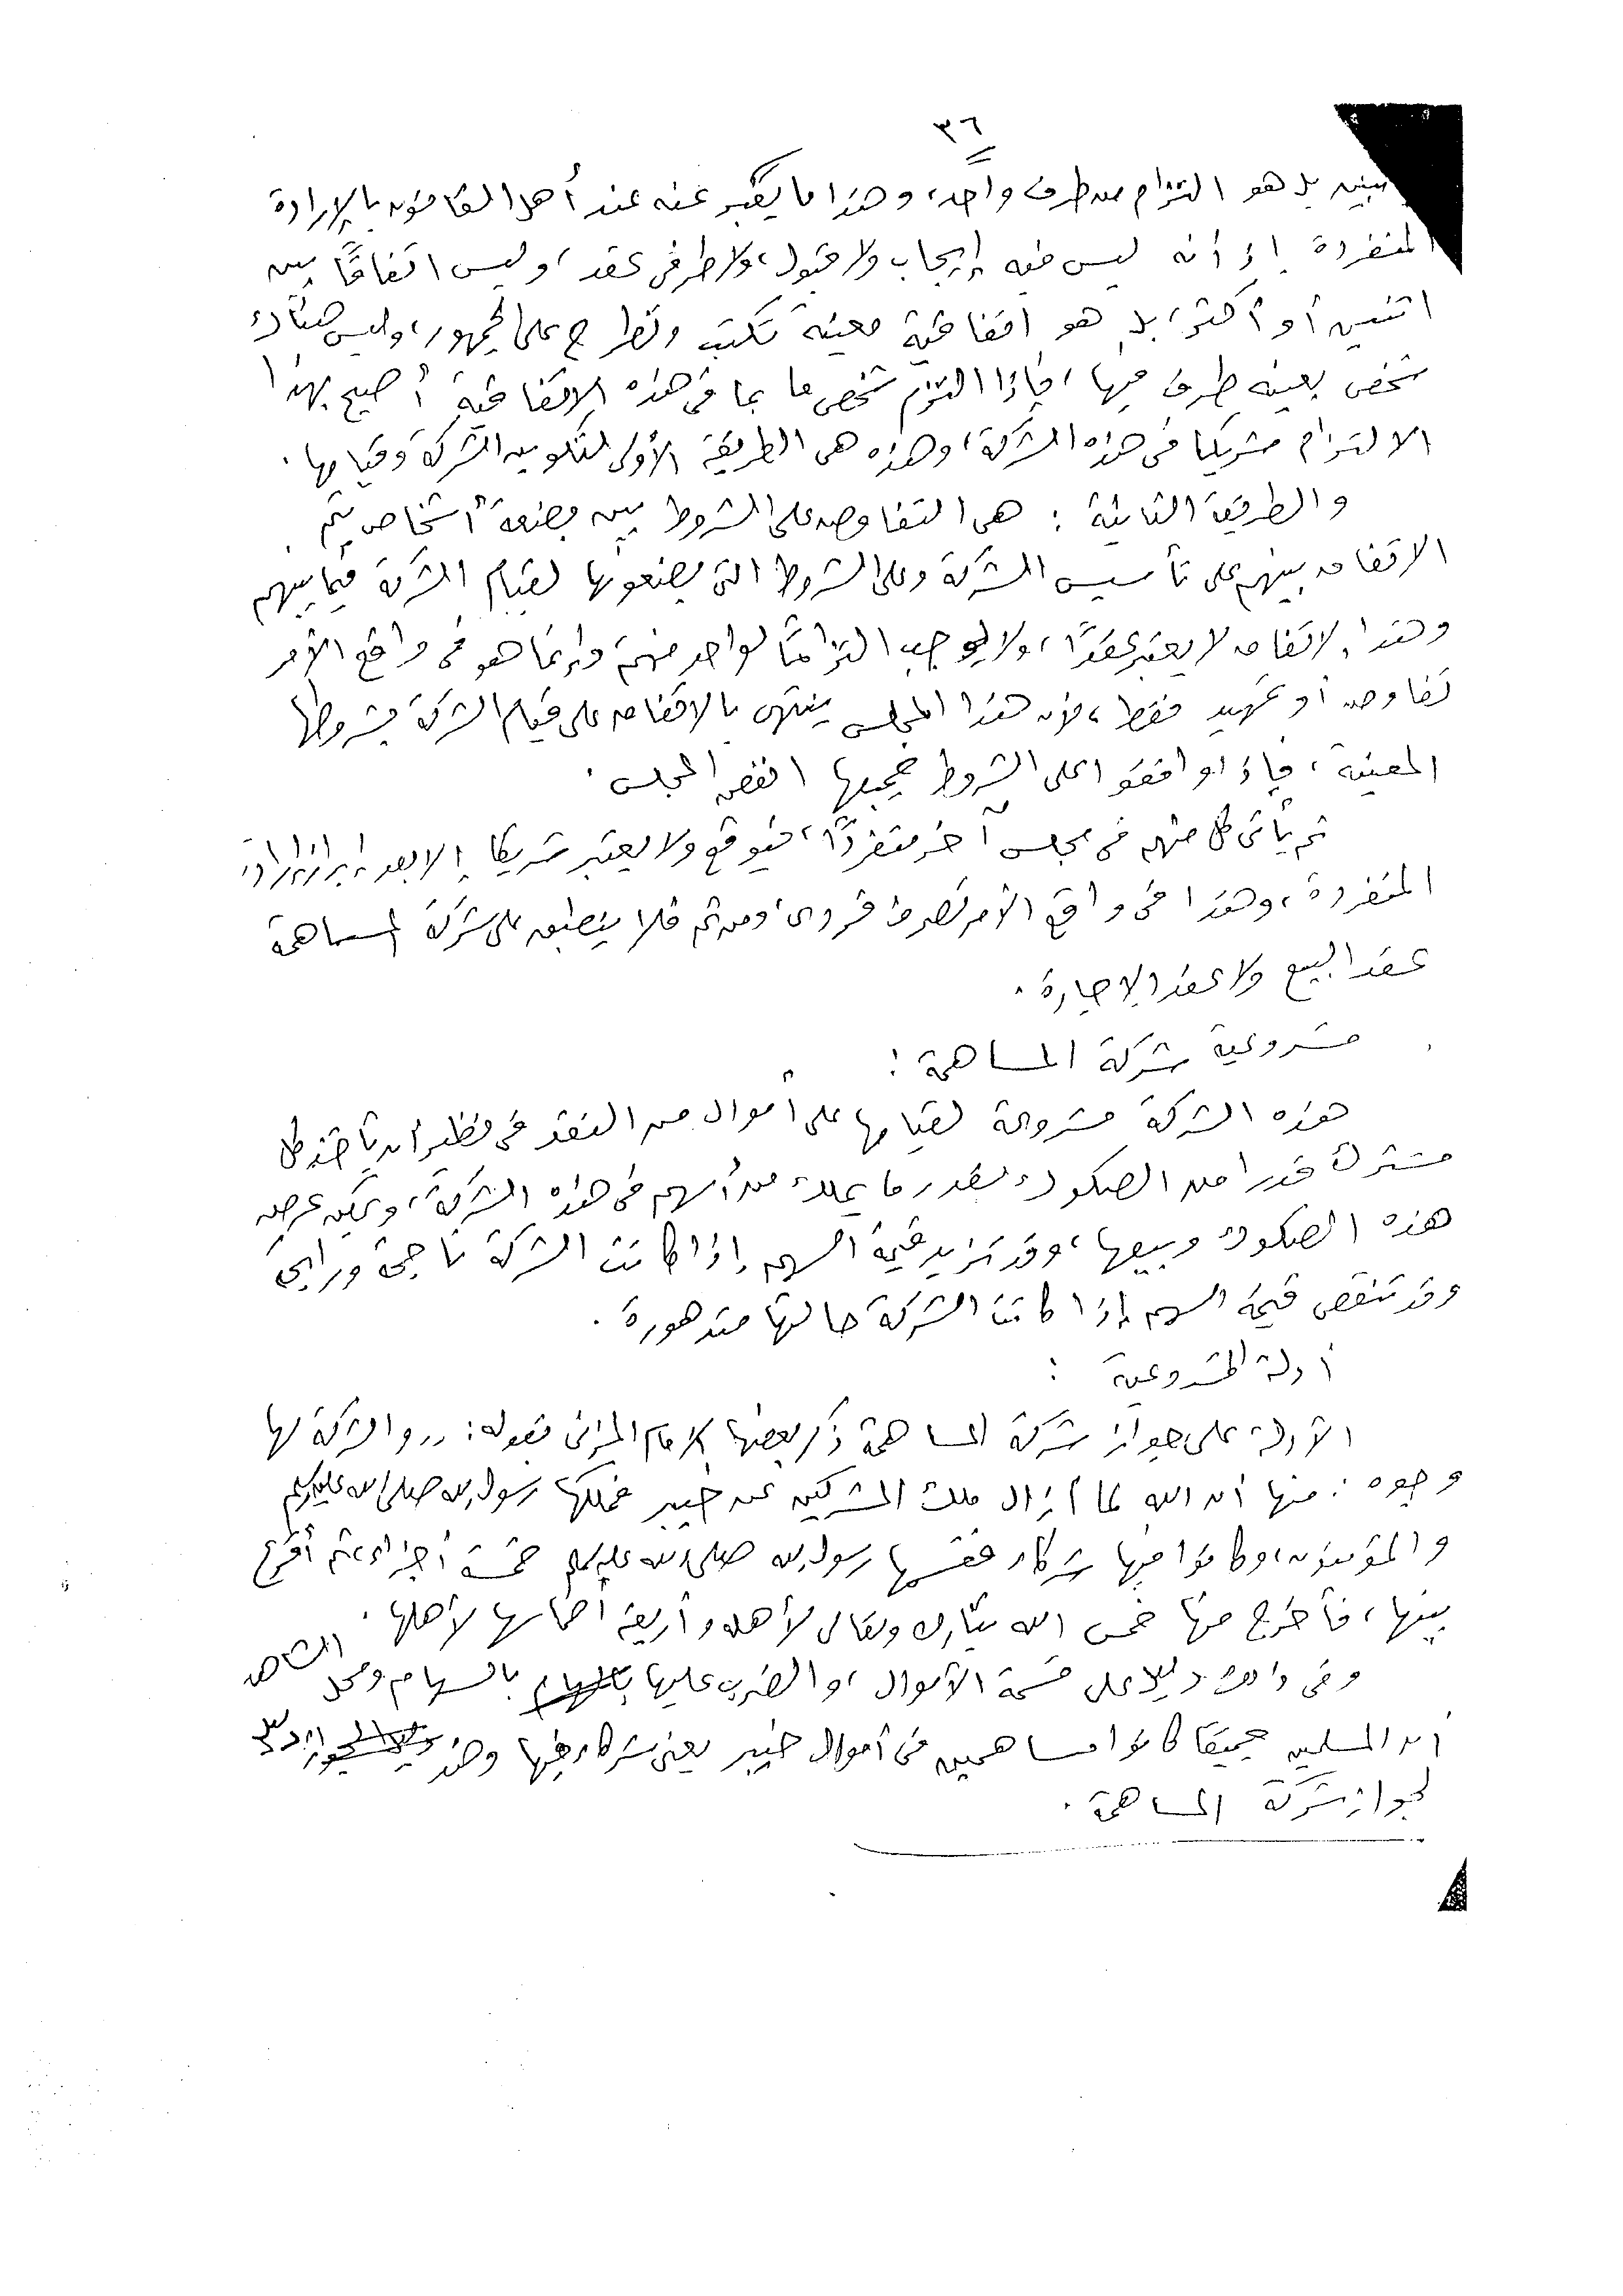 ٣٦
بل هو التزام من طرف واحد، وهذا ما يعبر عنه عند أهل القانون بالإرادة
المنفردة إذ أنه ليس فيه إيجاب ولا قبول، ولا طرفى عقد، وليس اتفاقًا بين
اثنين أو أكثر، بل هو اتفاقية معينة تكتب وتطرح على الجمهور، وليس هناك
شخص بعينه طرف فيها، فإذا التزم شخص ما بما فى هذه الاتفاقية أصبح بهذا
الالتزام شريكا فى هذه الشركة، وهذه هى الطريقة الأولى لتكوين الشركة وقيامها.
والطريقة الثانية : هى التفاوض على الشروط بين بضعة أشخاص يتم
الاتفاق بينهم على تأسيس الشركة وعلى الشروط التى يضعونها لقيام الشركة فيما بينهم
وهذا الاتفاق لا يعتبر عقدًا، ولا يوجب التزامًا لواحد منهم، وإنما هو فى واقع الأمر
تفاوض أو تمهيد فقط، لأن هذا المجلس ينتهى بالاتفاق على قيام الشركة بشروطها
المعينة، فإذا وافقوا على الشروط جميعها انفض المجلس.
ثم يأتى كل منهم فى مجلس آخر منفردًا، فيوقع ولا يعتبر شريكا إلا بعد إبراز إرادته
المنفردة، وهذا فى واقع الأمر تصرف فردى، ومن ثم فلا ينطبق على شركة المساهمة
عقد البيع ولا عقد الإجارة.
مشروعية شركة المساهمة :
هذه الشركة مشروعة لقيامها على أموال من النقد فى نظير أن يأخذ كل
مشترك قدرا من الصكوك بقدر ما يملك من أسهم فى هذه الشركة، ويمكن عرض
هذه الصكوك وبيعها، وقد تزيد قيمة السهم إذا كانت الشركة ناجحة ورابحة
وقد تنقص قيمة السهم إذا كانت الشركة حالتها متدهورة.
أدلة المشروعية :
الأدلة على جواز شركة المساهمة ذكر بعضها الإمام المزنى بقوله : ((والشركة لها
وجوه : منها أن الله لما أزال ملك المشركين عن خيبر فملكها رسول الله صلى الله عليه وسلم
والمؤمنون، وكانوا فيها شركاء فقسمها رسول الله صلى الله عليه وسلم خمسة أجزاء، ثم أقرع
بينها، فأخرج منها خمس الله تبارك وتعالى لأهله وأربعة أخماسها لأهلها.
وفى ذلك دليل على قسمة الأموال، والضرب عليها بالسهام ومحل الشاهد
أن المسلمين جميعًا كانوا مساهمين فى أموال خيبر يعنى شركاء فيها وهذا دليل
لجواز شركة المساهمة.